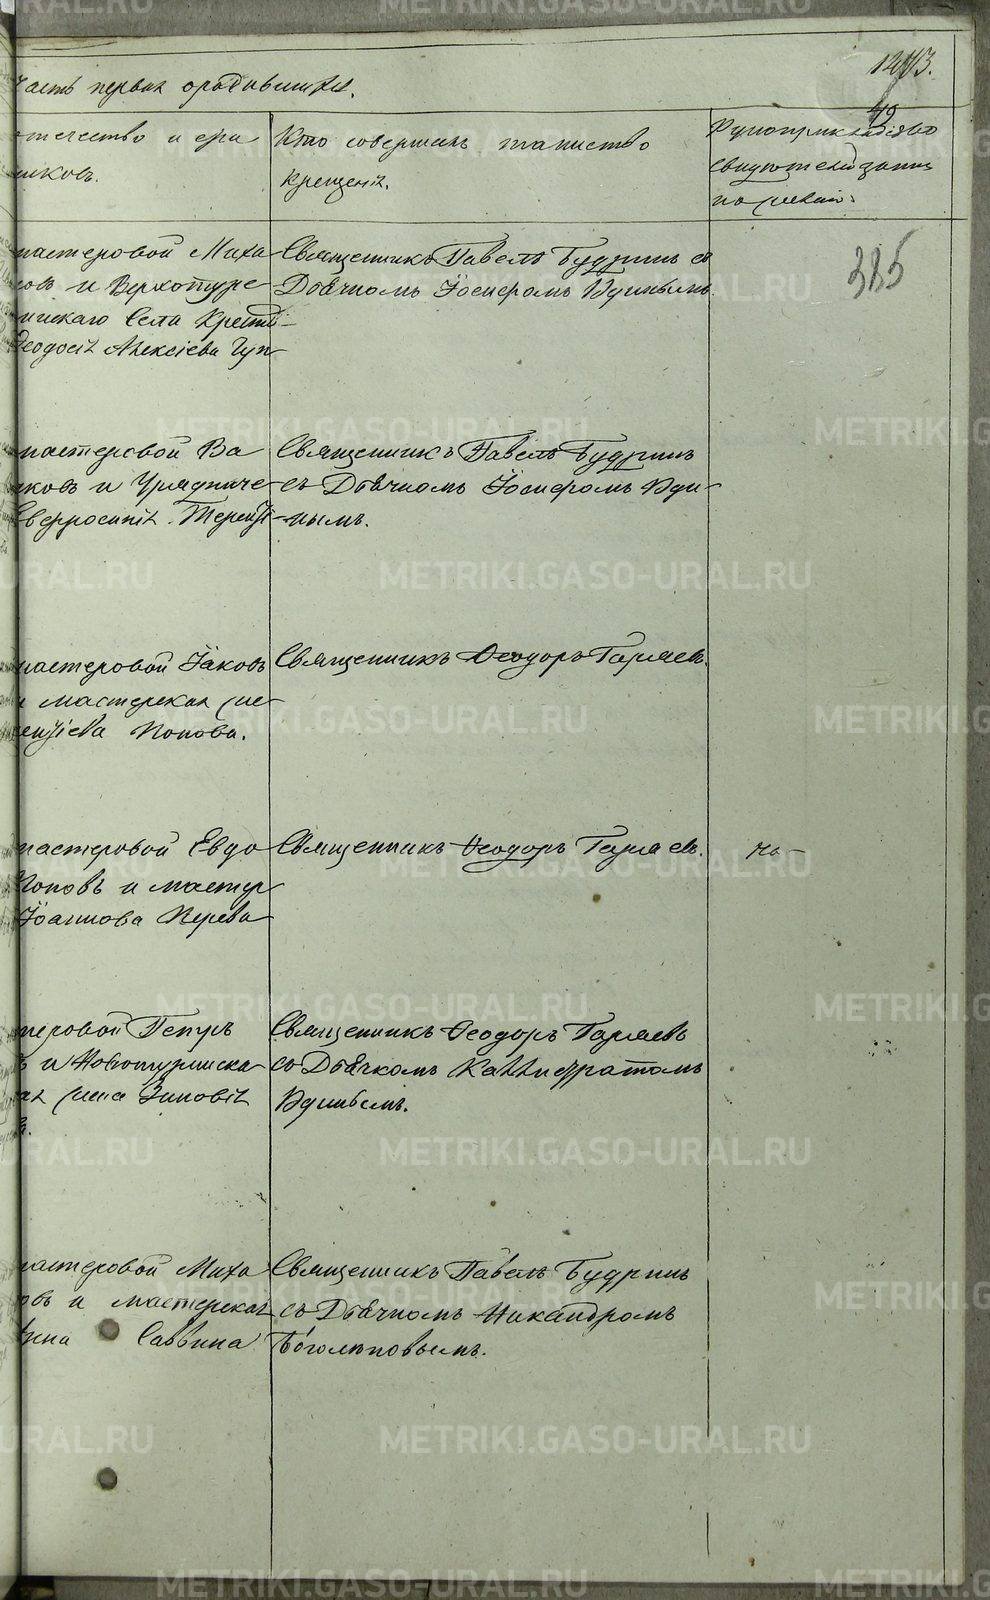 1213.
49
Часть первая о родившихся.
отчество и фа
миковъ.
Кто совершалъ таинство
крещенія.
Рукоприкладство
свидѣтелей записи
по желанію.
385
мастеровой Миха
овъ и Верхотурс
скаго Села Крестья
Ѳеодосія Алексіева
Священникъ Павелъ Будринъ съ
Дьячкомъ Іосифомъ Удинымъ
мастеровой Ва
ковъ и Уряднич
Священникъ Павелъ Будринъ
съ Дьячкомъ Іосифомъ Уди-
нымъ.
мастеровой Іаковъ
мастерская
Попова.
Священникъ Ѳеодоръ Гаряевъ.
мастеровой Евдо
Поповъ и мастер
Іоаннова
Священникъ Ѳеодоръ Гаряевъ.
теровой Петръ
и Новотуринска
Зиновія
Священникъ Ѳеодоръ Гаряевъ
со Дьячкомъ Каллистратомъ
Удинымъ.
мастеровой Миха
овъ и мастерская
Саввина
Священникъ Павелъ Будринъ
съ Дьячкомъ Никандромъ
Боголѣповымъ.
METRIKI.GASO-URAL.RU